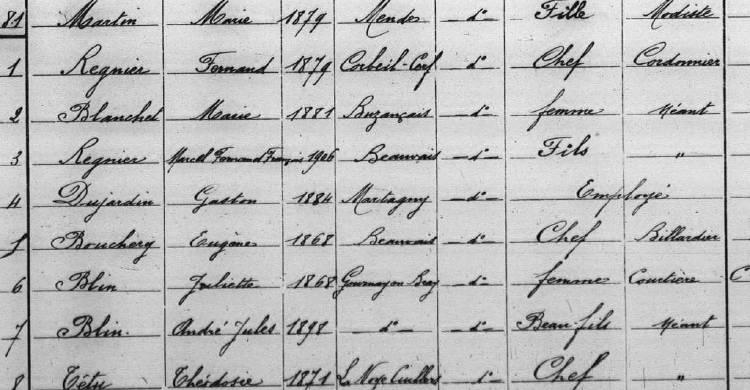 81 Martin Marie 1879 Mendes -d°- Fille Modiste
1 Regnier Fernand 1879 Corbeil-Cerf -d°- Chef Cordonnier
2 Blanchet Marie 1881 Buzançais -d°- femme Néant
3 Regnier Marcel Fernand François 1906 Beauvais -d°- Fils "
4 Dujardin Gaston 1884 Martagny -d°- Employé
5 Bouchery Eugène 1868 Beauvais -d°- Chef Billardier
6 Blin Juliette 1868 Gournay en Bray -d°- femme Courtière C
7 Blin André Jules 1898 -d°- -d°- Beau-fils Néant
8 Tétu Théodosie 1871 -d°- Chef "